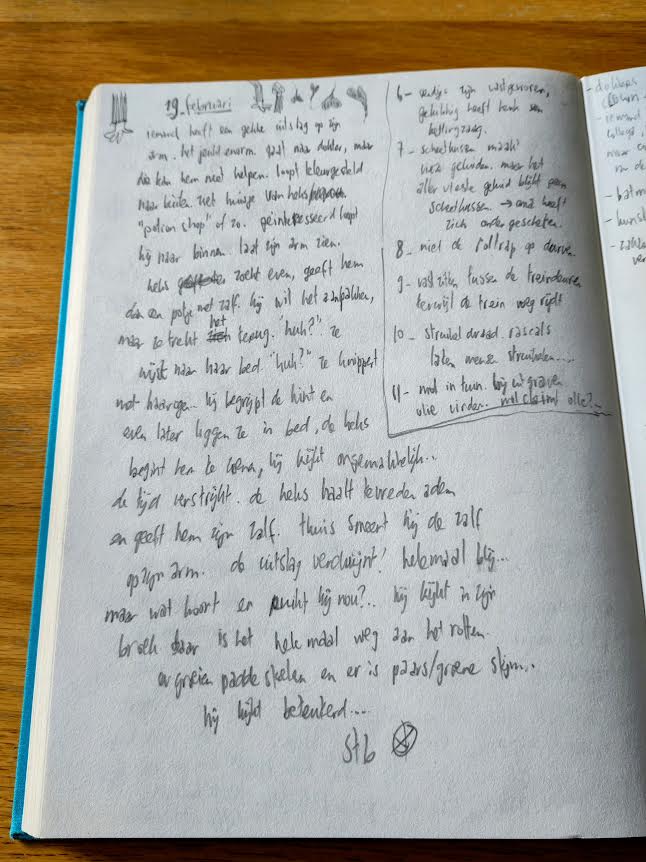 19 februari
iemand heeft een gekke uitslag op zijn
arm. het jeukt enorm. gaat naar dokter, maar
die kan hem niet helpen. loopt teleurgesteld
naar buiten. ziet huisje van heks
"potion shop" of zo. geinteresseerd loopt
hij naar binnen. laat zijn arm zien.
heks zoekt even, geeft hem
dan een potje met zalf. hij wil het aanpakken,
maar ze trekt het terug. "huh?" ze
wijst naar haar bed. "huh?" ze knippert
met haar ogen. hij begrijpt de hint en
even later liggen ze in bed, de heks
begint hem te , hij kijkt ongemakkelijk..
de tijd verstrijkt. de heks haalt tevreden adem
en geeft hem zijn zalf. thuis smeert hij de zalf
op zijn arm. de uitslag verdwijnt! helemaal blij...
maar wat hoort en ruikt hij nou?.. hij kijkt in zijn
broek daar is het helemaal weg aan het rotten.
er groeien paddestoelen en er is paars/groene slijm..
hij kijkt beteuterd....
St6
6 - eendjes zijn vastgevroren,
gelukkig heeft henk een
kettingzaag.
7 - scheetkussen maakt
vieze geluiden. maar het
aller vieste geluid blijft geen
scheetkussen. → oma heeft
zich onder gescheten.
8 - niet de roltrap op durven
9 - vast zitten tussen de treindeuren
terwijl de trein weg rijdt
10 - struikel draad. rascals
laten mensen struikelen....
11 - mol in tuin. bij uitgraven
olie vinden. mol claimt olie?..
- dokters
- iemand
- batm
- kunst